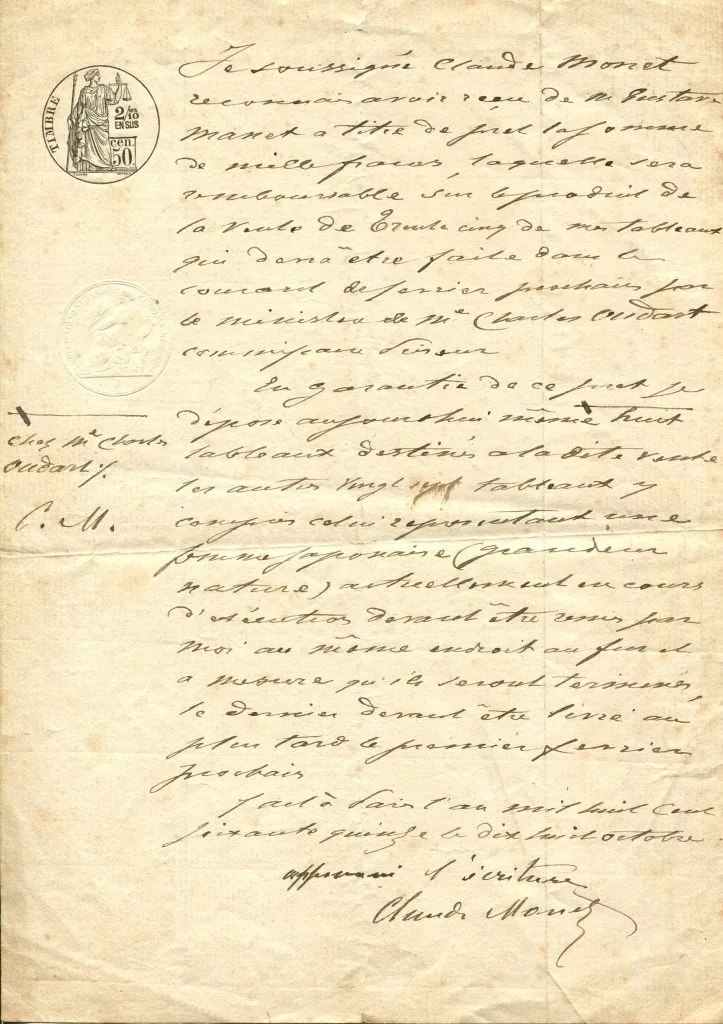 TIMBRE
2/10 EN SUS
50 cen.
Je soussigné Claude Monet
reconnais avoir recu de M Gustave
Manet a titre de pret la somme
de mille francs laquelle sera
remboursable sur le produit de
la vente de Trente cinq de mes tableaux
qui devra être faite dans le
courant de fevrier prochain par
le ministère de Me Charles Oudart
commissaire priseur
En garantie de ce pret je
dépose aujourdhui même huit
tableaux destinés a la dite vente
les autres vingt sept tableaux y
compris celui representant une
femme japonaise (grandeur
nature) actuellement en cours
d'exécution devant être remis par
moi au même endroit au fur et
a mesure qu'ils seront terminés,
le dernier devant être livré au
plus tard le premier fevrier
prochain
fait à Paris l'an mil huit cent
soixante quinze le dix huit octobre
approuvé l'écriture
Claude Monet
chez Me Charles
Oudart
C. M.